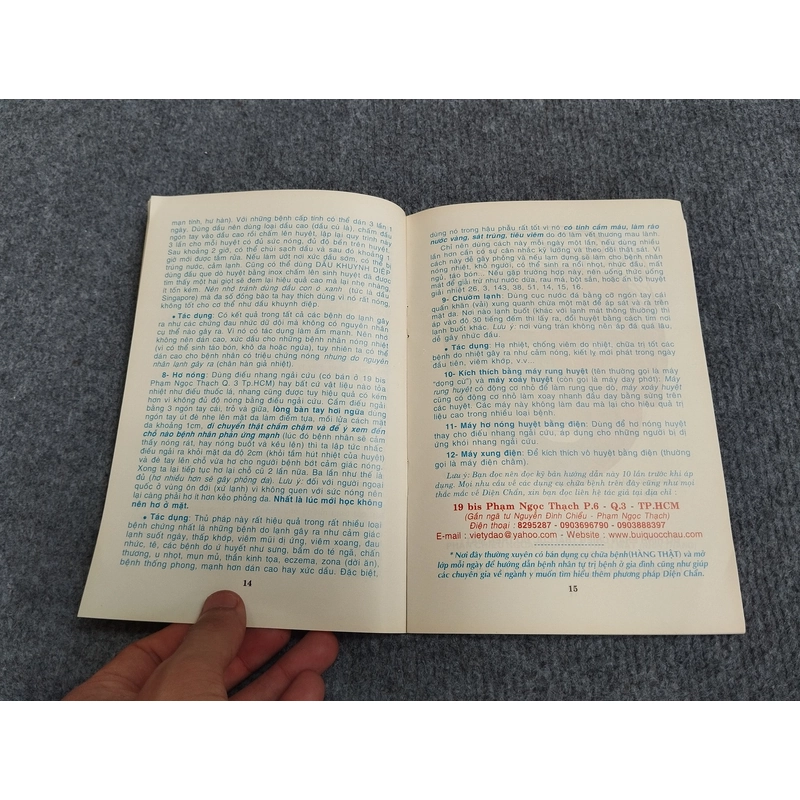 mạn tính, hư hàn). Với những bệnh cấp tính có thể dán 3 lần 1
ngày. Dùng dầu nên dùng loại dầu cao (dầu cù là), chấm đầu
ngón tay vào dầu cao rồi chấm lên huyệt, lặp lại quy trình này
3 lần cho mỗi huyệt có đủ sức nóng, đủ độ bền trên huyệt.
Sau khoảng 2 giờ, có thể chùi sạch dầu và sau đó khoảng 1
giờ mới được tắm rửa. Nếu làm ướt nơi xức dầu sớm, có thể bị
trúng nước, cảm lạnh. Cũng có thể dùng DẦU KHUYNH DIỆP
dùng đầu que dò huyệt bằng inox chấm lên sinh huyệt đã được
tìm thấy một hai giọt sẽ đem lại hiệu quả cao mà lại nhẹ nhàng,
ít tốn kém. Nên nhớ tránh dùng dầu con ó xanh (tức là dầu
Singapore) mà đa số đồng bào ta hay thích dùng vì nó rất nóng,
không tốt cho cơ thể như dầu khuynh diệp.
• Tác dụng: Có kết quả trong tất cả các bệnh do lạnh gây
ra như các chứng đau nhức dữ dội mà không có nguyên nhân
cụ thể nào gây ra. Vì nó có tác dụng làm ấm mạnh. Nên nhớ
không nên dán cao, xức dầu cho những bệnh nhân nóng nhiệt
(vì có thể sinh táo bón, khô da hoặc ngứa), tuy nhiên ta có thể
dán cao cho bệnh nhân có triệu chứng nóng nhưng do nguyên
nhân lạnh gây ra (chân hàn giả nhiệt).
8- Hơ nóng: Dùng điếu nhang ngải cứu (có bán ở 19 bis
Phạm Ngọc Thạch Q. 3 Tp.HCM) hay bất cứ vật liệu nào tỏa
nhiệt như điếu thuốc lá, nhưng có hiệu quả kém hơn
vì không đủ độ nóng bằng điếu ngải cứu. Cầm điếu ngải
bằng 3 ngón tay cái, trỏ và giữa, lòng bàn tay hơi ngửa dùng
ngón tay út đè nhẹ lên mặt da làm điểm tựa, mồi lửa cách mặt
da khoảng 1cm, di chuyển thật chầm chậm và để ý xem đến
chỗ nào bệnh nhân phản ứng mạnh (lúc đó bệnh nhân sẽ cảm
thấy nóng rát, hay nóng buốt và kêu lên) thì ta lập tức nhấc
điếu ngải ra khỏi mặt da độ 2cm (khỏi tầm hút nhiệt của huyệt)
và đè tay lên chỗ vừa hơ cho người bệnh bớt cảm giác nóng.
Xong ta lại tiếp tục hơ lại chỗ cũ 2 lần nữa. Ba lần như thế là
đủ (hơ nhiều hơn sẽ gây phỏng da). Lưu ý: đối với người ngoại
quốc ở vùng ôn đới (xứ lạnh) vì không quen với sức nóng nên
lại càng phải hơ ít hơn kẻo phỏng da. Nhất là lúc mới học không
nên hơ ở mặt.
• Tác dụng: Thủ pháp này rất hiệu quả trong rất nhiều loại
bệnh chứng nhất là những bệnh do lạnh gây ra như cảm giác
lạnh suốt ngày, thấp khớp, viêm mũi dị ứng, viêm xoang, đau
nhức, tê, các bệnh do ứ huyết như sưng, bầm do té ngã, chấn
thương, u nhọt, mụn mủ, thần kinh tọa, eczema, zona (dời ăn),
bệnh thống phong, mạnh hơn dán cao hay xức dầu. Đặc biệt,
14
dùng nó trong hậu phẫu rất tốt vì nó có tính cầm máu, làm ráo
nước vàng, sát trùng, tiêu viêm do đó làm vết thương mau lành.
Chỉ nên dùng cách này mỗi ngày một lần, nếu dùng nhiều
lần hơn cần có sự cân nhắc kỹ lưỡng và theo dõi thật sát. Vì
cách này dễ gây phỏng và nếu lạm dụng sẽ làm cho bệnh nhân
nóng nhiệt, khô người, có thể sinh ra nổi nhọt, nhức đầu, mất
ngủ, táo bón... Nếu gặp trường hợp này, nên uống thức uống
mát để giải trừ như nước dừa, rau má, bột sắn, hoặc ấn bộ huyệt
giải nhiệt 26, 3, 143, 38, 51, 14, 15, 16.
9- Chườm lạnh: Dùng cục nước đá bằng cỡ ngón tay cái
quấn khăn (vải) xung quanh chừa một mặt để áp sát và rà trên
mặt da. Nơi nào lạnh buốt (khác với lạnh mát thông thường) thì
áp vào độ 30 tiếng đếm thì lấy ra, đổi huyệt bằng cách tìm nơi
lạnh buốt khác. Lưu ý: nơi vùng trán không nên áp đá quá lâu,
dễ gây nhức đầu.
• Tác dụng: Hạ nhiệt, chống viêm do nhiệt, chữa trị tốt các
bệnh do nhiệt gây ra như cảm nóng, kiết lỵ mới phát trong ngày
đầu tiên, viêm khớp, v.v...
10- Kích thích bằng máy rung huyệt (tên thường gọi là máy
"dọng cừ") và máy xoáy huyệt (còn gọi là máy day phớt). Máy
rung huyệt có động cơ nhỏ để làm rung que dò, máy xoáy huyệt
cũng có động cơ nhỏ làm xoay nhanh đầu day bằng sừng trên
các huyệt. Các máy này không làm đau mà lại cho hiệu quả trị
liệu cao trong nhiều loại bệnh.
11- Máy hơ nóng huyệt bằng điện: Dùng để hơ nóng huyệt
thay cho điếu nhang ngải cứu, áp dụng cho những người bị dị
ứng khói nhang ngải cứu.
12- Máy xung điện: Để kích thích vô huyệt bằng điện (thường
gọi là máy điện châm).
Lưu ý: Bạn đọc nên đọc kỹ bản hướng dẫn này 10 lần trước khi áp
dụng. Mọi nhu cầu về các dụng cụ chữa bệnh trên đây cũng như mọi
thắc mắc về Diện Chẩn, xin bạn đọc liên hệ tác giả tại địa chỉ :
19 bis Phạm Ngọc Thạch P.6 - Q.3 - TP.HCM
(Gần ngã tư Nguyễn Đình Chiểu - Phạm Ngọc Thạch)
Điện thoại : 8295287 - 0903696790 - 0903888397
E-mail : vietydao@yahoo.com - Website : www.buiquocchau.com
* Nơi đây thường xuyên có bán dụng cụ chữa bệnh(HÀNG THẬT) và mở
lớp mỗi ngày để hướng dẫn bệnh nhân tự trị bệnh ở gia đình cũng như giúp
các chuyên gia về ngành y muốn tìm hiểu thêm phương pháp Diện Chẩn.
15